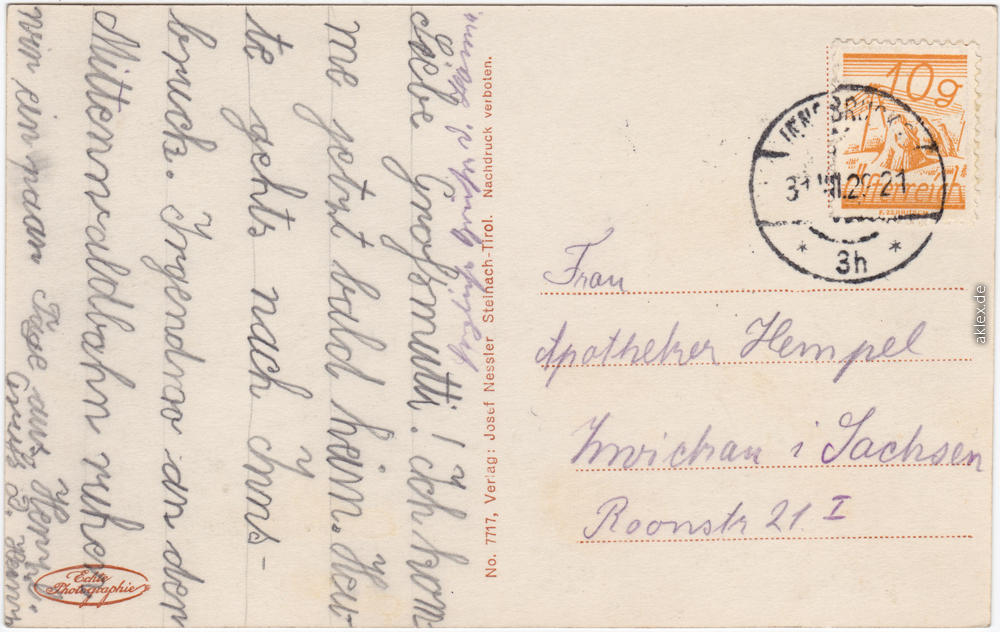 Liebe Großmutti! Ich kom-
me jetzt bald heim. Heu-
te gehts nach Inns-
bruck. Irgendwo an der
Mittenwaldbahn ruhen
wir ein paar Tage aus
Gruß
No. 7717, Verlag: Josef Nessler Steinach-Tirol. Nachdruck verboten.
Echte
Photographie
10g
Österreich
INNSBRUCK
21
* 3h *
Frau
Apotheker Hempel
Zwickau i Sachsen
Roonstr 21 I
aklex.de